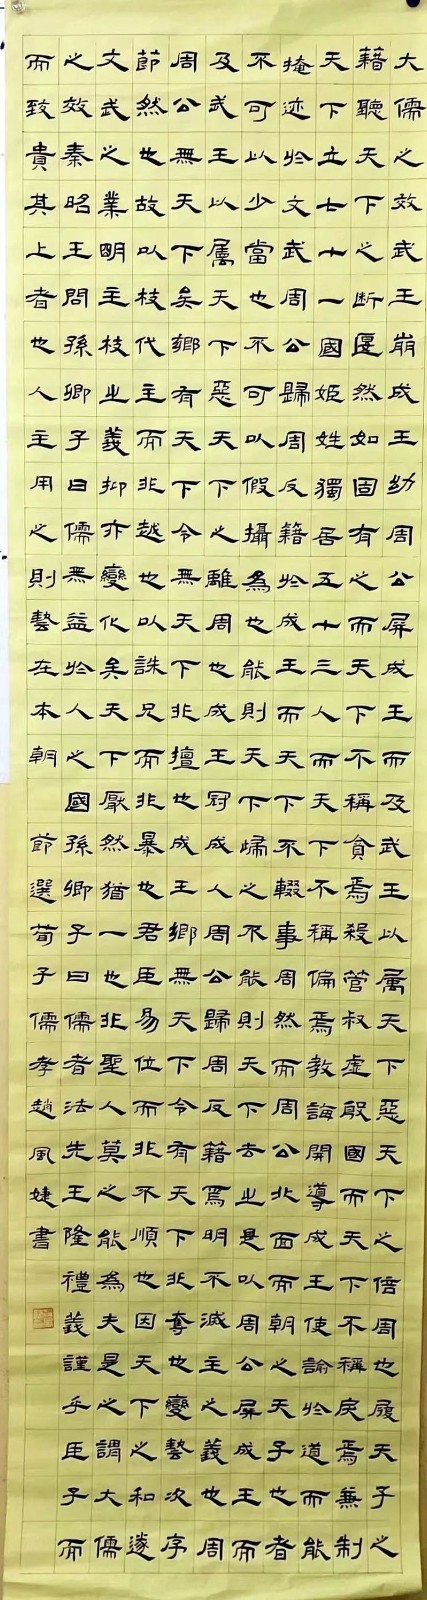 大儒之效武王崩成王幼周公屏成王而及武王以属天下惡天下之倍周也履天子之
藉聽天下之断偃然如固有之而天下不稱貪焉殺管叔虚殷國而天下不稱戾焉兼制
天下立七十一國姬姓獨居五十三人而天下不稱偏焉教誨開導成王使諭於道而能
掩迹於文武周公歸周反籍於成王而天下不輟事周然而周公北面而朝之天子也者
不可以少當也不可以假攝為也能則天下歸之不能則天下去之是以周公屏成王而
及武王以属天下惡天下之離周也成王冠成人周公歸周反籍焉明不滅主之義也周
周公無天下矣鄉有天下今無天下非擅也成王鄉無天下今有天下非奪也變勢次序
節然也故以枝代主而非越也以誅兄而非暴也君臣易位而非不順也因天下之和遂
文武之業明主枝之義抑亦變化矣天下厭然猶一也非聖人莫之能為夫是之謂大儒
之效秦昭王問孫卿子曰儒無益於人之國孫卿子曰儒者法先王隆禮義謹乎臣子而
而致貴其上者也人主用之則勢在本朝 節選荀子儒孝趙風婕書